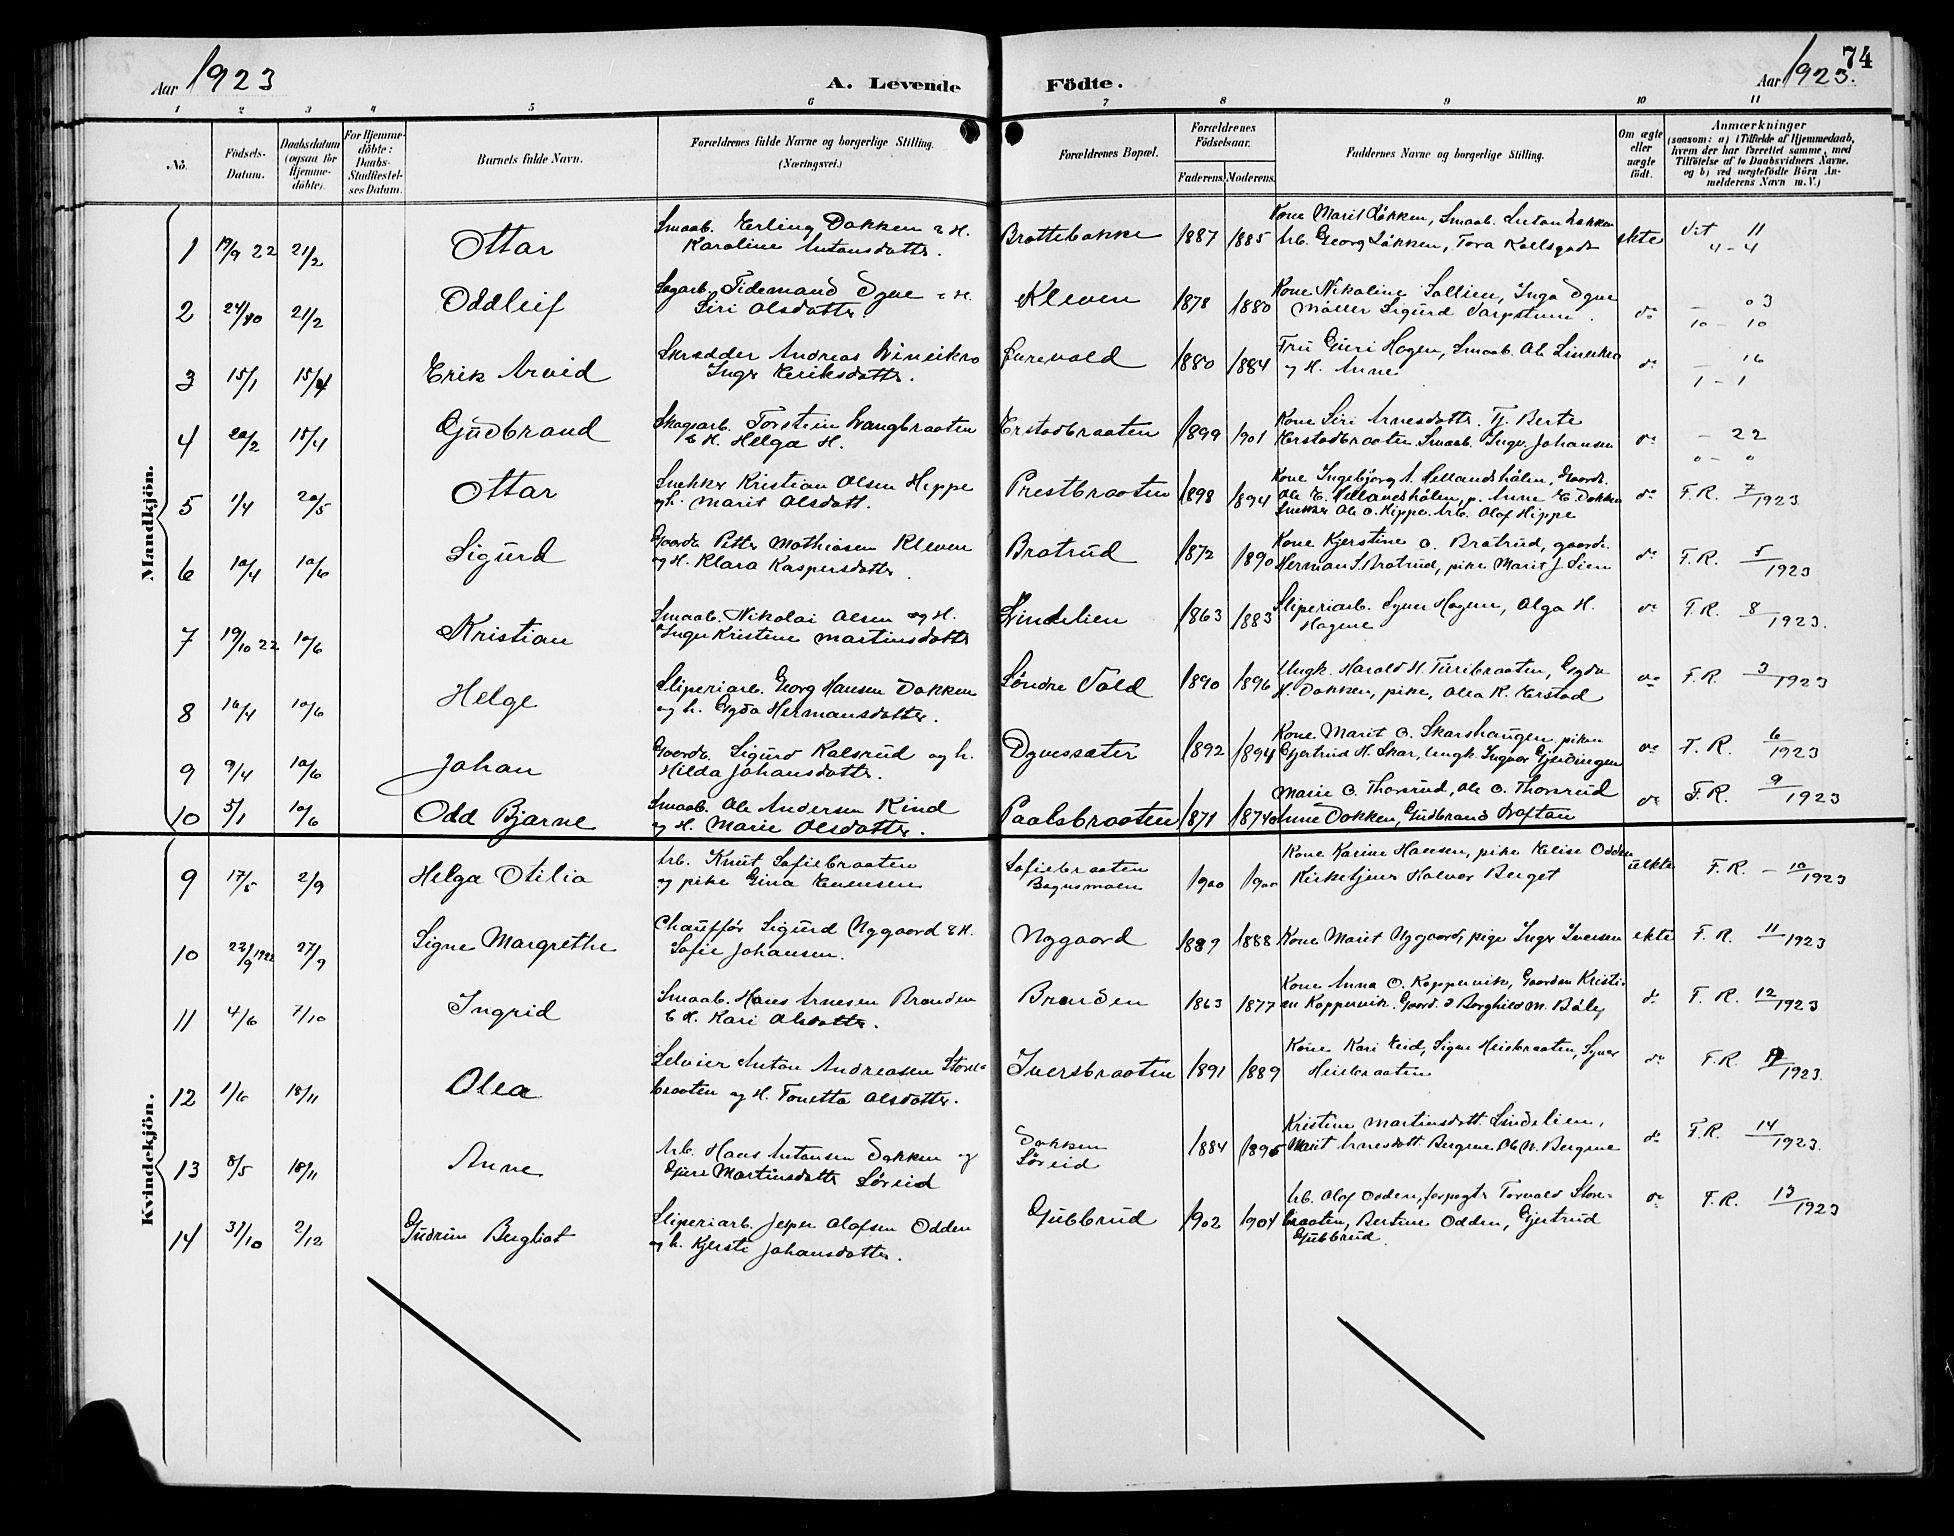 74
Aar 1923
A. Levende
Födte.
Aar 1923.
1 2 3 4 5 6 7 8 9 10 11
No.
Födsels-Datum.
Daabsdatum (ogsaa for Hjemme-döbte).
For Hjemme-döbte: Daabs-Stadfæstel-ses Datum.
Barnets fulde Navn.
Forældrenes fulde Navne og borgerlige Stilling.
(Næringsvei.)
Forældrenes Bopæl.
Forældrenes Födselsaar.
Faderens. Moderens.
Faddernes Navne og borgerlige Stilling.
Om ægte eller uægte födt.
Anmærkninger
(saasom: a) i Tilfælde af Hjemmedaab, hvem der har forrettet samme, med Tilföielse af to Daabsvidners Navne. og b) ved uægtefödte Börn An-melderens Navn m. V.)
Mandkjön.
1 19/9 22 21/2 Ottar
Smaab. Erling Dokken & H.
Karoline Antonsdatter.
Brattebakke 1887 1885
Kone Marit Løkken, Smaab. Anton Løkken
Arb. Georg Løkken, Tora
ekte
11
4-4
2 24/10 21/2 Oddleif
Sagarb. Tidemand Dgne & H.
Siri Olsdatter.
Kleven 1878 1880
Kone Nikoline Sollien, Inga Dgne
Møller Sigurd
do
03
10-10
3 15/1 15/4 Erik Arvid
Skrædder Andreas
Inger Eriksdatter.
1880 1884
Fru Guri Hagen, Smaab. Ole
og H. Anne
do
16
1-1
4 20/2 15/4 Gudbrand
Skogsarb. Torstein Vangbraaten
& H. Helga H.
Erstadbraaten 1899 1901
Kone Siri Arnesdatter. Tj. Berte
Erstadbraaten Smaab. Ingv. Johansen
do
22
0-0
5 1/4 20/5 Ottar
Snekker Kristian Olsen Hippe
og h. Marit Olsdatt.
Prestbraaten 1898 1894
Kone Ingebjørg A. Hellandshølen, Gaardb.
Ole E. Hellandshølen, p. Anne E. Dokken
Snekker Ole O. Hippe. Arb. Olaf Hippe
do F.R. 7/1923
6 10/4 10/6 Sigurd
Gaardb. Petter Mathiasen Kleven
og H. Klara Kaspersdatter.
Bratrud 1872 1890
Kone Kjerstine O. Bratrud, gaardb.
Herman S. Bratrud, pike Marit J. Lien
do F.R. 5/1923
7 19/10 22 10/6 Kristian
Smaab. Nikolai Olsen og H.
Inger Kristine Martinsdatter
Lindelien 1863 1883
Sliperiarb. Syver Hagene, Olga H.
Hagene
do F.R. 8/1923.
8 16/4 10/6 Helge
Sliperiarb. Georg Hansen Dokken
og h. Gyda Hermansdatter.
Søndre Vold 1890 1896
Ungk. Harald H. Turibraaten, Gyda
H. Dokken, pike, Olea K. Erstad
do F.R. 3/1923
9 9/4 10/6 Johan
Gaardb. Sigurd Kalsrud og h.
Hilda Johansdatter.
Dgnessæter 1892 1894
Kone Marit O. Skarshaugen, piken
Gjertrud H. Skar, Ungk. Ingvar Gjeidingen
do F.R. 6/1923
10 5/1 10/6 Odd Bjarne
Smaab. Ole Andersen Rind
og H. Marie Olsdatter.
Paalsbraaten 1871 1874
Marie O. Thorsrud, Ole O. Thorsrud
Anne Dokken, Gudbrand
do F.R. 9/1923
Kvindekjön.
9 17/5 2/9 Helga Otilia
Arb. Knut Sofiebraaten
og pike Gina Evensen
Sofiebraaten
Bagnsmoen
1900 1900
Kone Karine Hansen, pike Elise Odden
Kirketjener Halvor Berget
uekte F.R. – 10/1923
10 22/9 1922 27/9 Signe Margrethe
Chauffør Sigurd Nygaard & H.
Sofie Johansen.
Nygaard 1889 1888
Kone Marit Nygaard, pige Inger Iversen
ekte F.R. 11/1923
11 4/6 7/10 Ingrid
Smaab. Hans Arnesen Branden
& H. Kari Olsdatter.
Branden 1863 1877
Kone Anna O. Koppervik, Gaardm. Kristi-
an Koppervik. Gaard. d Borghild M.
do F.R. 12/1923
12 1/6 18/11 Olea
Selveier Anton Andreasen Store-
braaten og H. Tonetta Olsdatter.
Iversbraaten 1891 1889
Kone Kari Eid, Signe Heiebraaten, Syver
Heiebraaten
do F.R. 1923.
13 8/5 18/11 Anne
Arb. Hans Antonsen Dokken og
Guri Martinsdatter Søreid
Dokken
Søreid
1884 1895
Kristine Martinsdatt. Lindelien,
Marit Arnesdatt. Bergene Ole N. Bergene
do F.R. 14/1923.
14 31/10 2/12 Gudrun Bergliot
Sliperiarb. Jesper Olafsen Odden
og h. Kjersti Johansdatter.
Gubbrud 1902 1904
Arb. Olaf Odden, forpagt. Torvald Store-
braaten, Bertine Odden, Gjertrud
Gubbrud.
do F.R. 13/1923